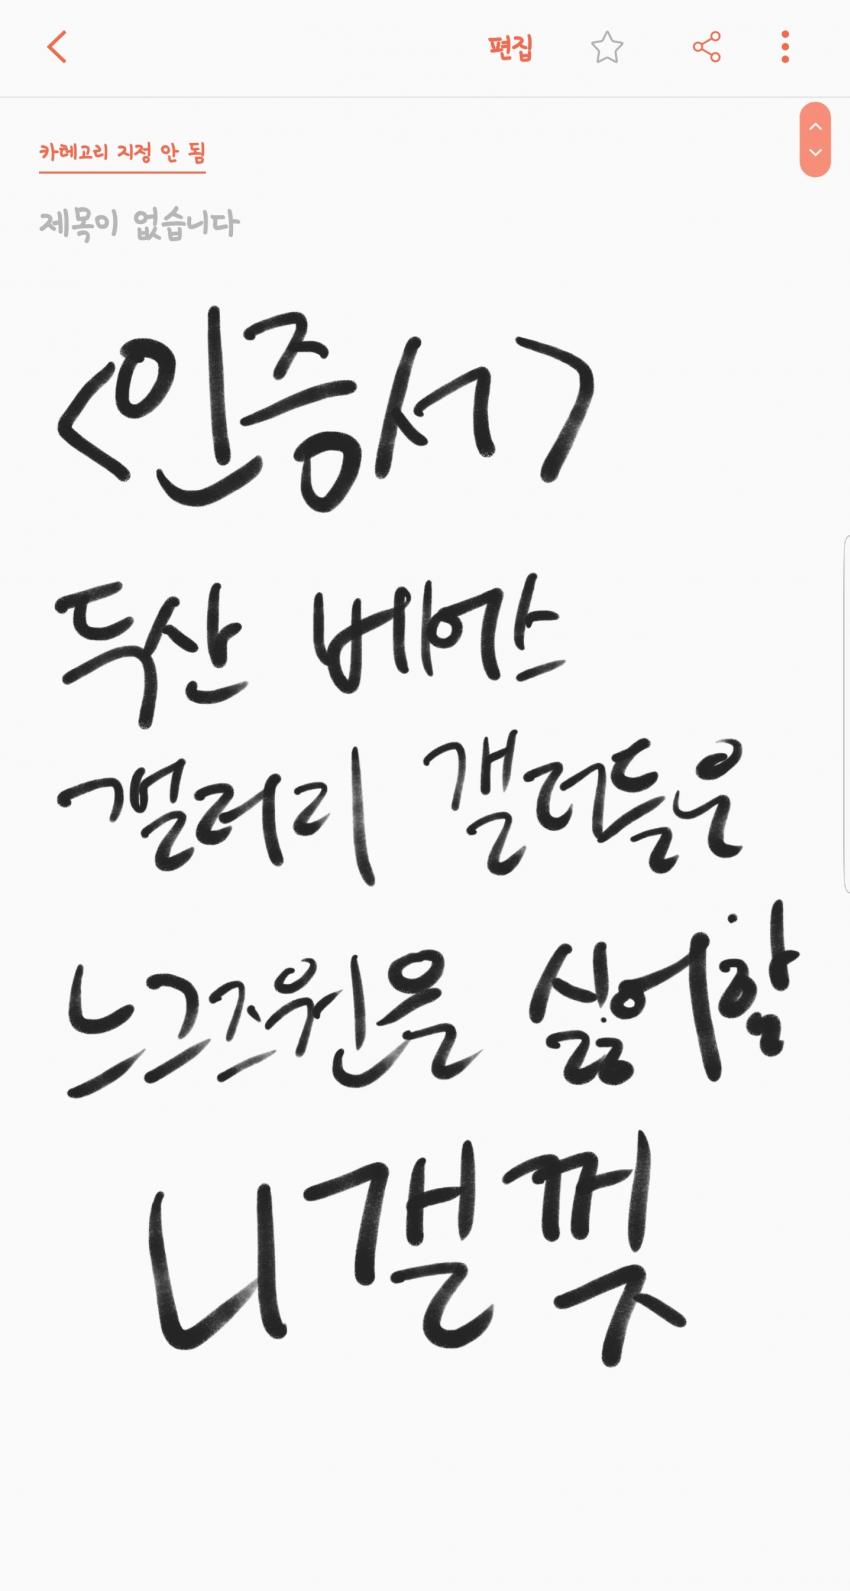 편집
카테고리 지정 안 됨
제목이 없습니다
<인증서>
두산 베어스
갤러리 갤러들은
느그즈원을 싫어할
니갤껒